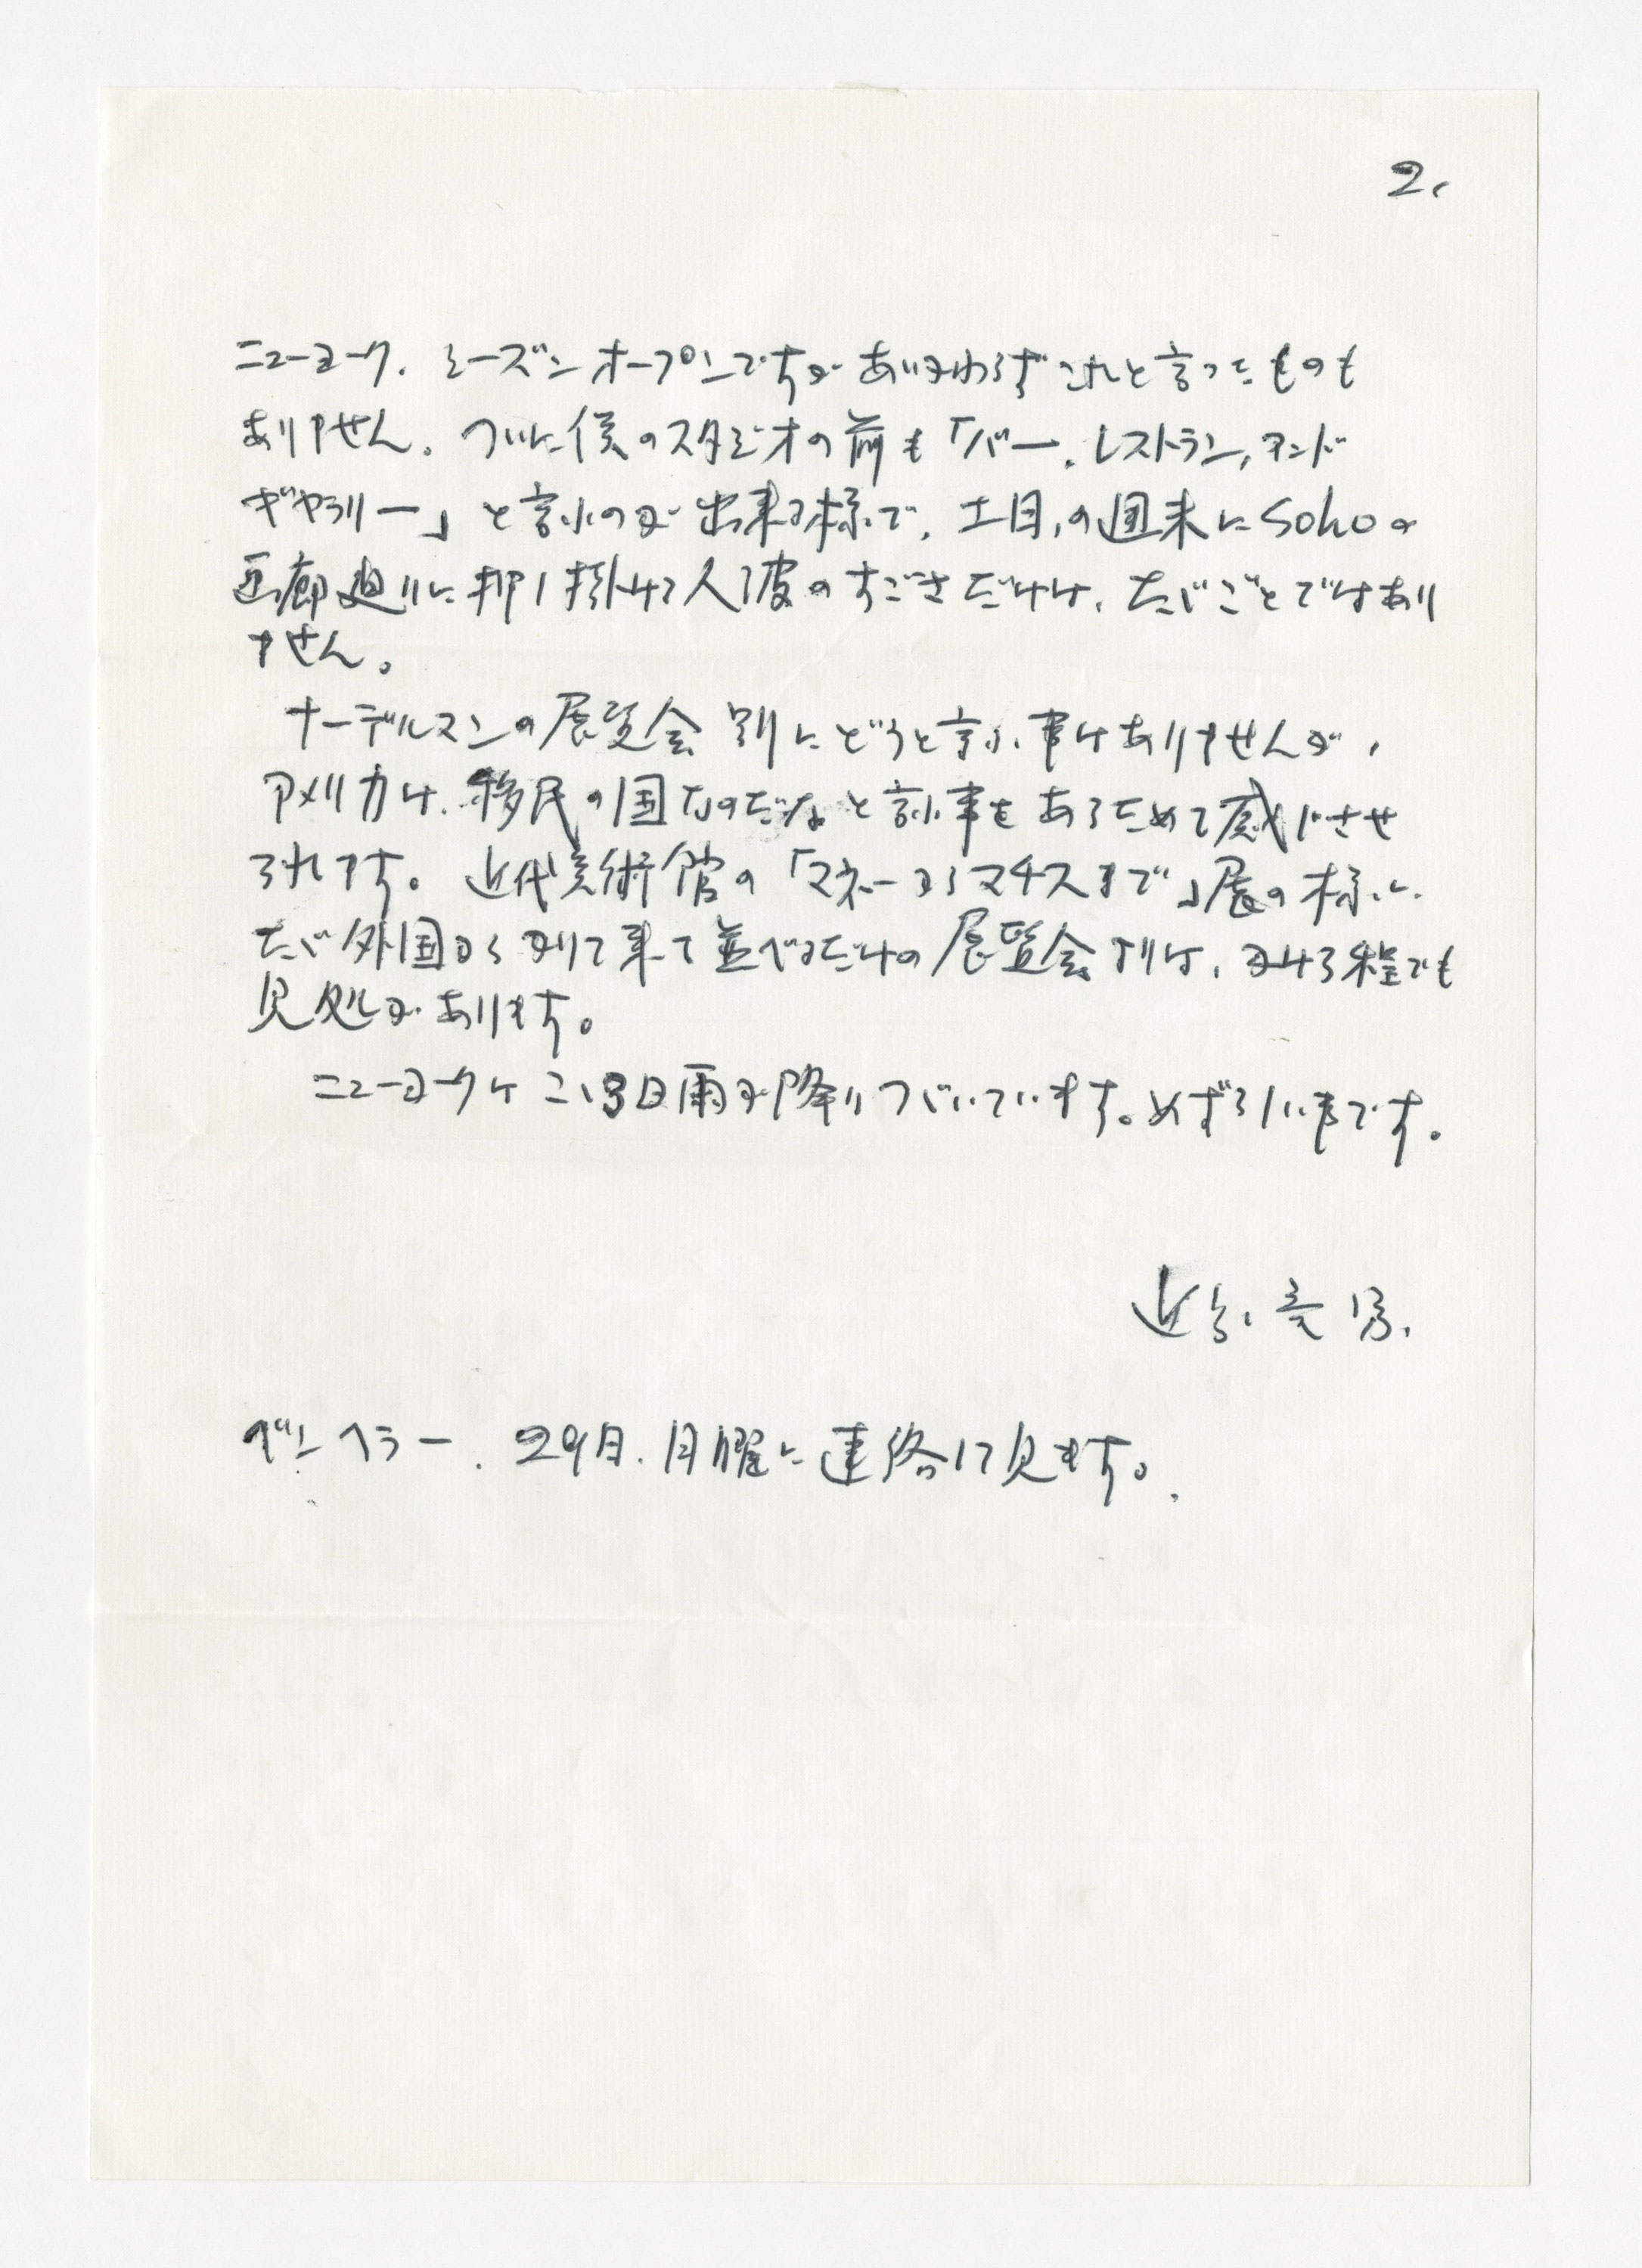 2.
ニューヨーク、シーズンオープンですが あいかわらずこれと言ったものも
ありません。ついに僕のスタジオの前も「バー、レストラン、アンド
ギャラリー」と言ふのが出来る様で、土日、の週末にSohoの
画廊廻りに押し掛ける人波のすごさだけは、たゞごとではあり
ません。
ナーデルマンの展覧会 別にどうと言ふ事はありませんが、
アメリカは、移民の国なのだなと言ふ事をあらためて感じさせ
られます。近代美術館の「マネーからマチスまで」展の様に、
たゞ外国から かりて来て並べるだけの展覧会よりは、はるか程でも
見処があります。
ニューヨークは こゝ3日雨が降りつゞいています。めずらしい事です。
近藤竜男
ゲンヘラー、29日、月曜に連絡して見ます。